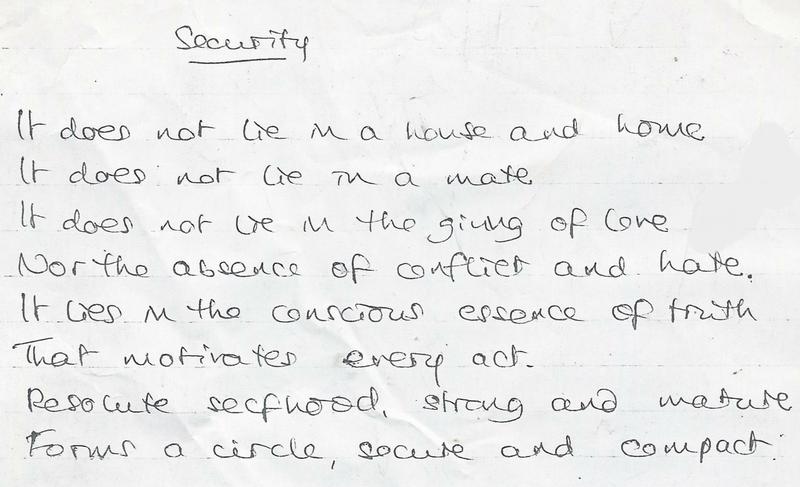 Security
It does not lie in a house and home
It does not lie in a mate
It does not lie in the giving of love
Nor the absence of conflict and hate.
It lies in the conscious essence of truth
That motivates every act.
Resolute selfhood, strong and mature
Forms a circle, secure and compact.